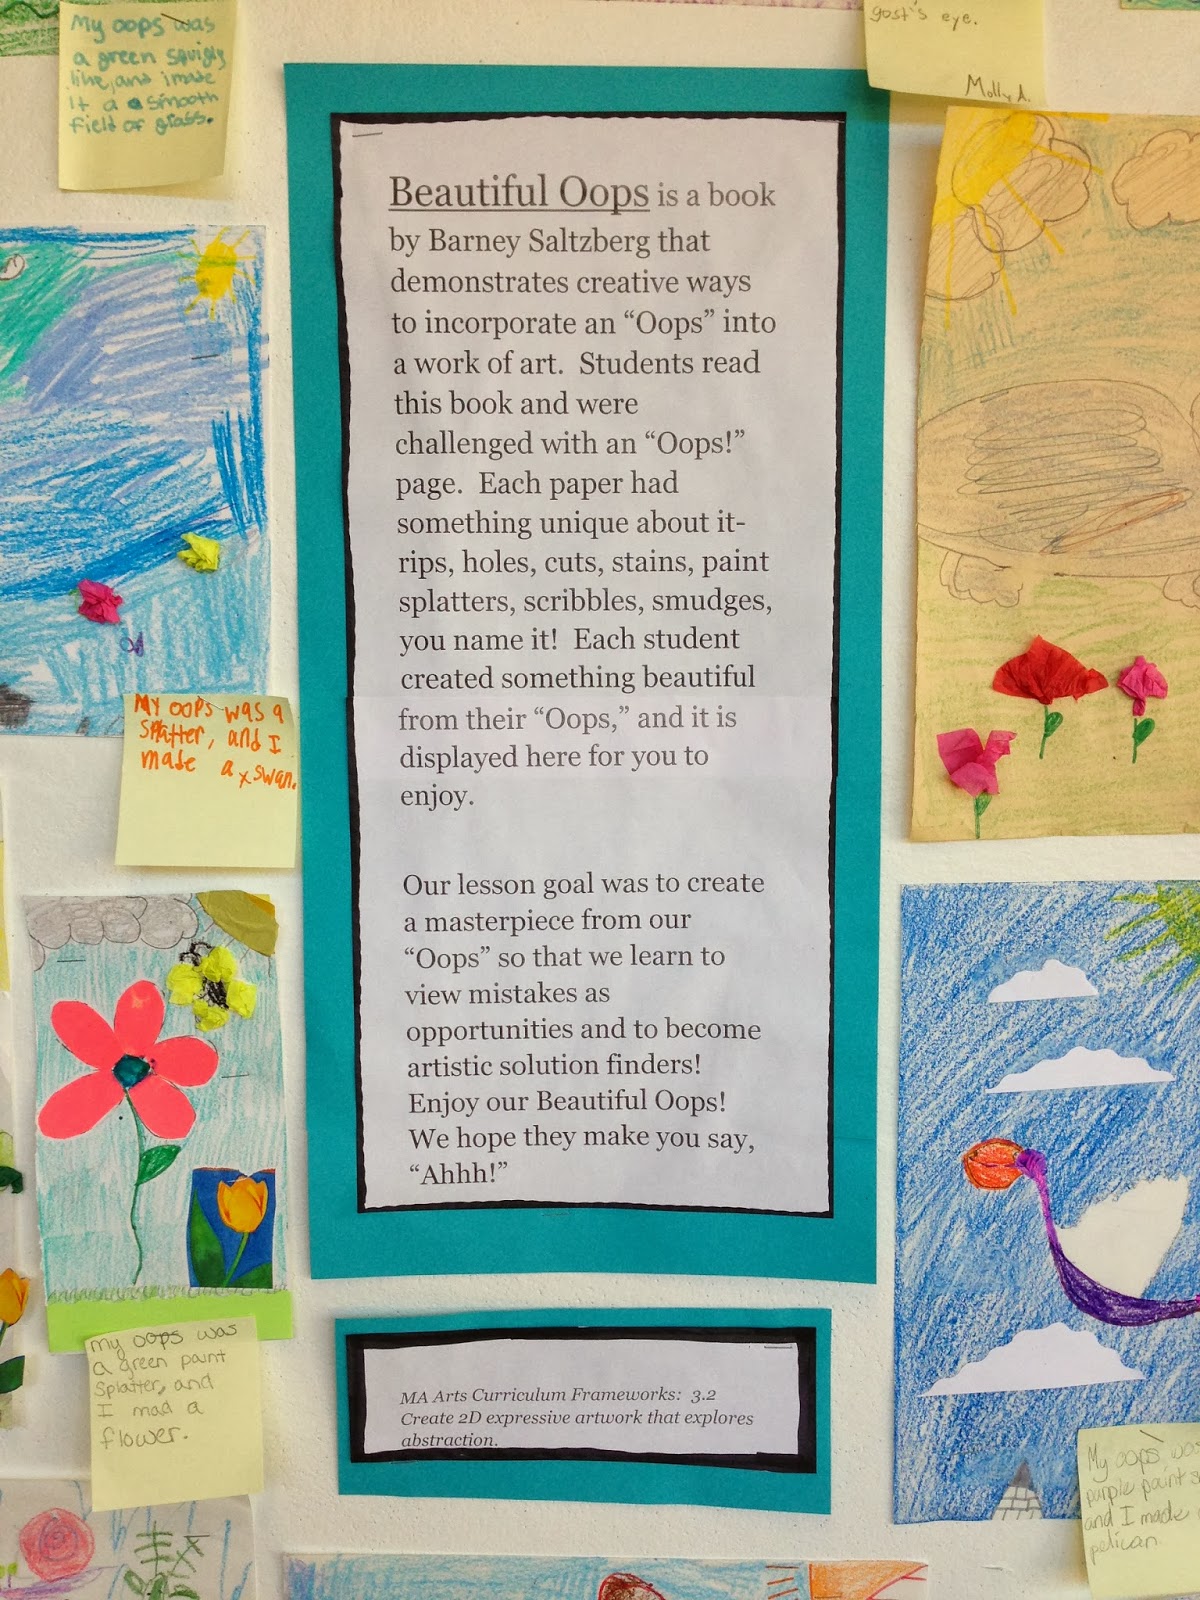 My oops was
a green squigly
line, and i made
it a smooth
field of grass.
gost's eye.
Molly A.
Beautiful Oops is a book
by Barney Saltzberg that
demonstrates creative ways
to incorporate an “Oops” into
a work of art.  Students read
this book and were
challenged with an “Oops!”
page.  Each paper had
something unique about it-
rips, holes, cuts, stains, paint
splatters, scribbles, smudges,
you name it!  Each student
created something beautiful
from their “Oops,” and it is
displayed here for you to
enjoy.
Our lesson goal was to create
a masterpiece from our
“Oops” so that we learn to
view mistakes as
opportunities and to become
artistic solution finders!
Enjoy our Beautiful Oops!
We hope they make you say,
“Ahhh!”
MY oops was a
splatter, and I
made a swan.
my oops was
a green paint
splatter, and
I mad a
flower.
MA Arts Curriculum Frameworks:  3.2
Create 2D expressive artwork that explores
abstraction.
My oops was
purple paint
and I made
pelican.